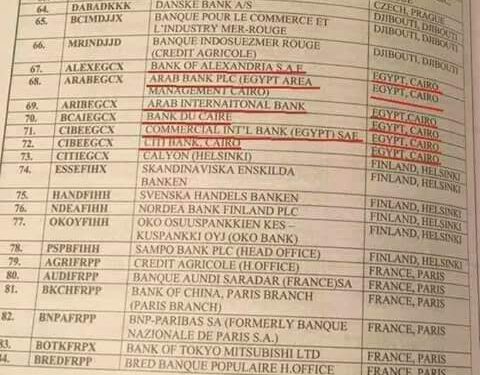 64. DABADKKK DANSKE BANK A/S CZECH, PRAGUE
65. BCIMDJJX BANQUE POUR LE COMMERCE ET DJIBOUTI, DJIBOUTI
L'INDUSTRY MER-ROUGE
66. MRINDJJD BANQUE INDOSUEZMER ROUGE DJIBOUTI, DJIBOUTI
(CREDIT AGRICOLE)
67. ALEXEGCX BANK OF ALEXANDRIA S.A.E EGYPT, CAIRO
68. ARABEGCX ARAB BANK PLC (EGYPT AREA EGYPT, CAIRO
MANAGEMENT CAIRO)
69. ARIBEGCX ARAB INTERNAITONAL BANK EGYPT,CAIRO
70. BCAIEGCX BANK DU CAIRE EGYPT, CAIRO
71. CIBEEGCX COMMERCIAL INT'L BANK (EGYPT) SAE EGYPT, CAIRO
72. CIBEEGCX CITI BANK, CAIRO EGYPT, CAIRO
73. CITIEGCX CALYON (HELSINKI) FINLAND, HELSINKI
74. ESSEFIHX SKANDINAVISKA ENSKILDA FINLAND, HELSINKI
BANKEN
75. HANDFIHH SVENSKA HANDELS BANKEN FINLAND, HELSINKI
76. NDEAFIHH NORDEA BANK FINLAND PLC FINLAND, HELSINKI
77. OKOYFIHH OKO OSUUSPANKKIEN KES – FINLAND, HELSINKI
KUSPANKKI OYJ (OKO BANK)
78. PSPBFIHH SAMPO BANK PLC (HEAD OFFICE) FINLAND, HELSINKI
79. AGRIFRPP CREDIT AGRICOLE (H.OFFICE) FRANCE, PARIS
80. AUDIFRPP BANQUE AUNDI SARADAR (FRANCE)SA FRANCE, PARIS
81. BKCHFRPP BANK OF CHINA, PARIS BRANCH
(PARIS BRANCH)
82. BNPAFRPP BNP-PARIBAS SA (FORMERLY BANQUE FRANCE, PARIS
NAZIONALE DE PARIS S.A.)
83. BOTKFRPX BANK OF TOKYO MITSUBISHI LTD FRANCE, PARIS
84. BREDFRPP BRED BANQUE POPULAIRE H.OFFICE FRANCE, PARIS